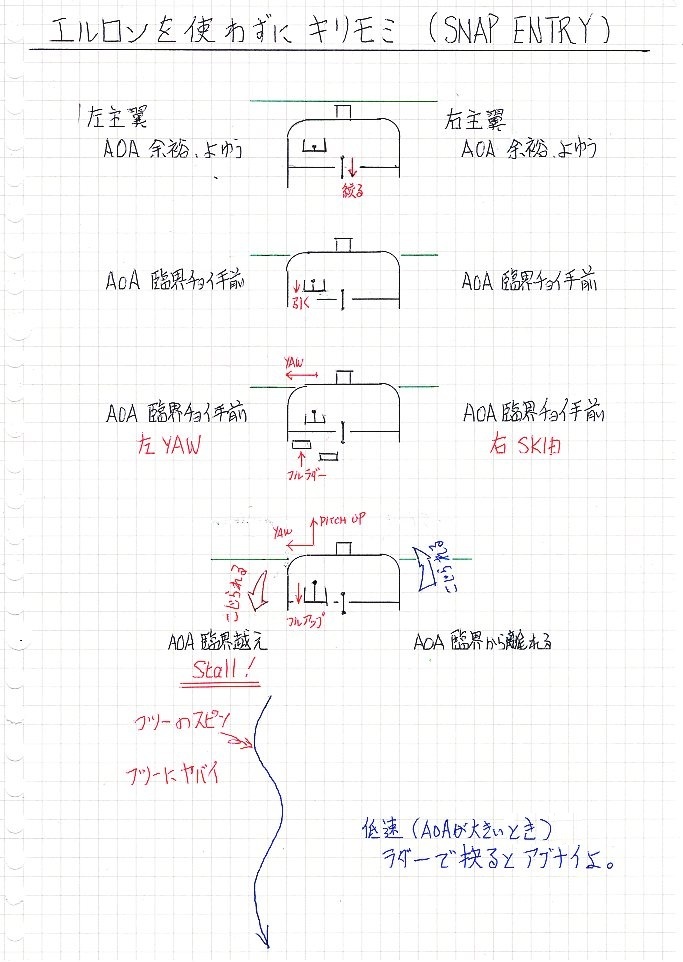 エルロンを使わずに キリモミ (SNAP ENTRY)
左主翼
AOA 余裕、よゆう
右主翼
AOA 余裕、よゆう
絞る
AOA 臨界チョイ手前
引く
AOA 臨界チョイ手前
YAW
AOA 臨界チョイ手前
左 YAW
フルラダー
AOA 臨界チョイ手前
右 SKID
PITCH UP
YAW
こじられる
フルアップ
こじられる
AOA 臨界越え
Stall!
AOA 臨界から離れる
フツーのスピン
フツーにヤバイ
低速 (AOAが大きいとき)
ラダーで抉るとアブナイよ。